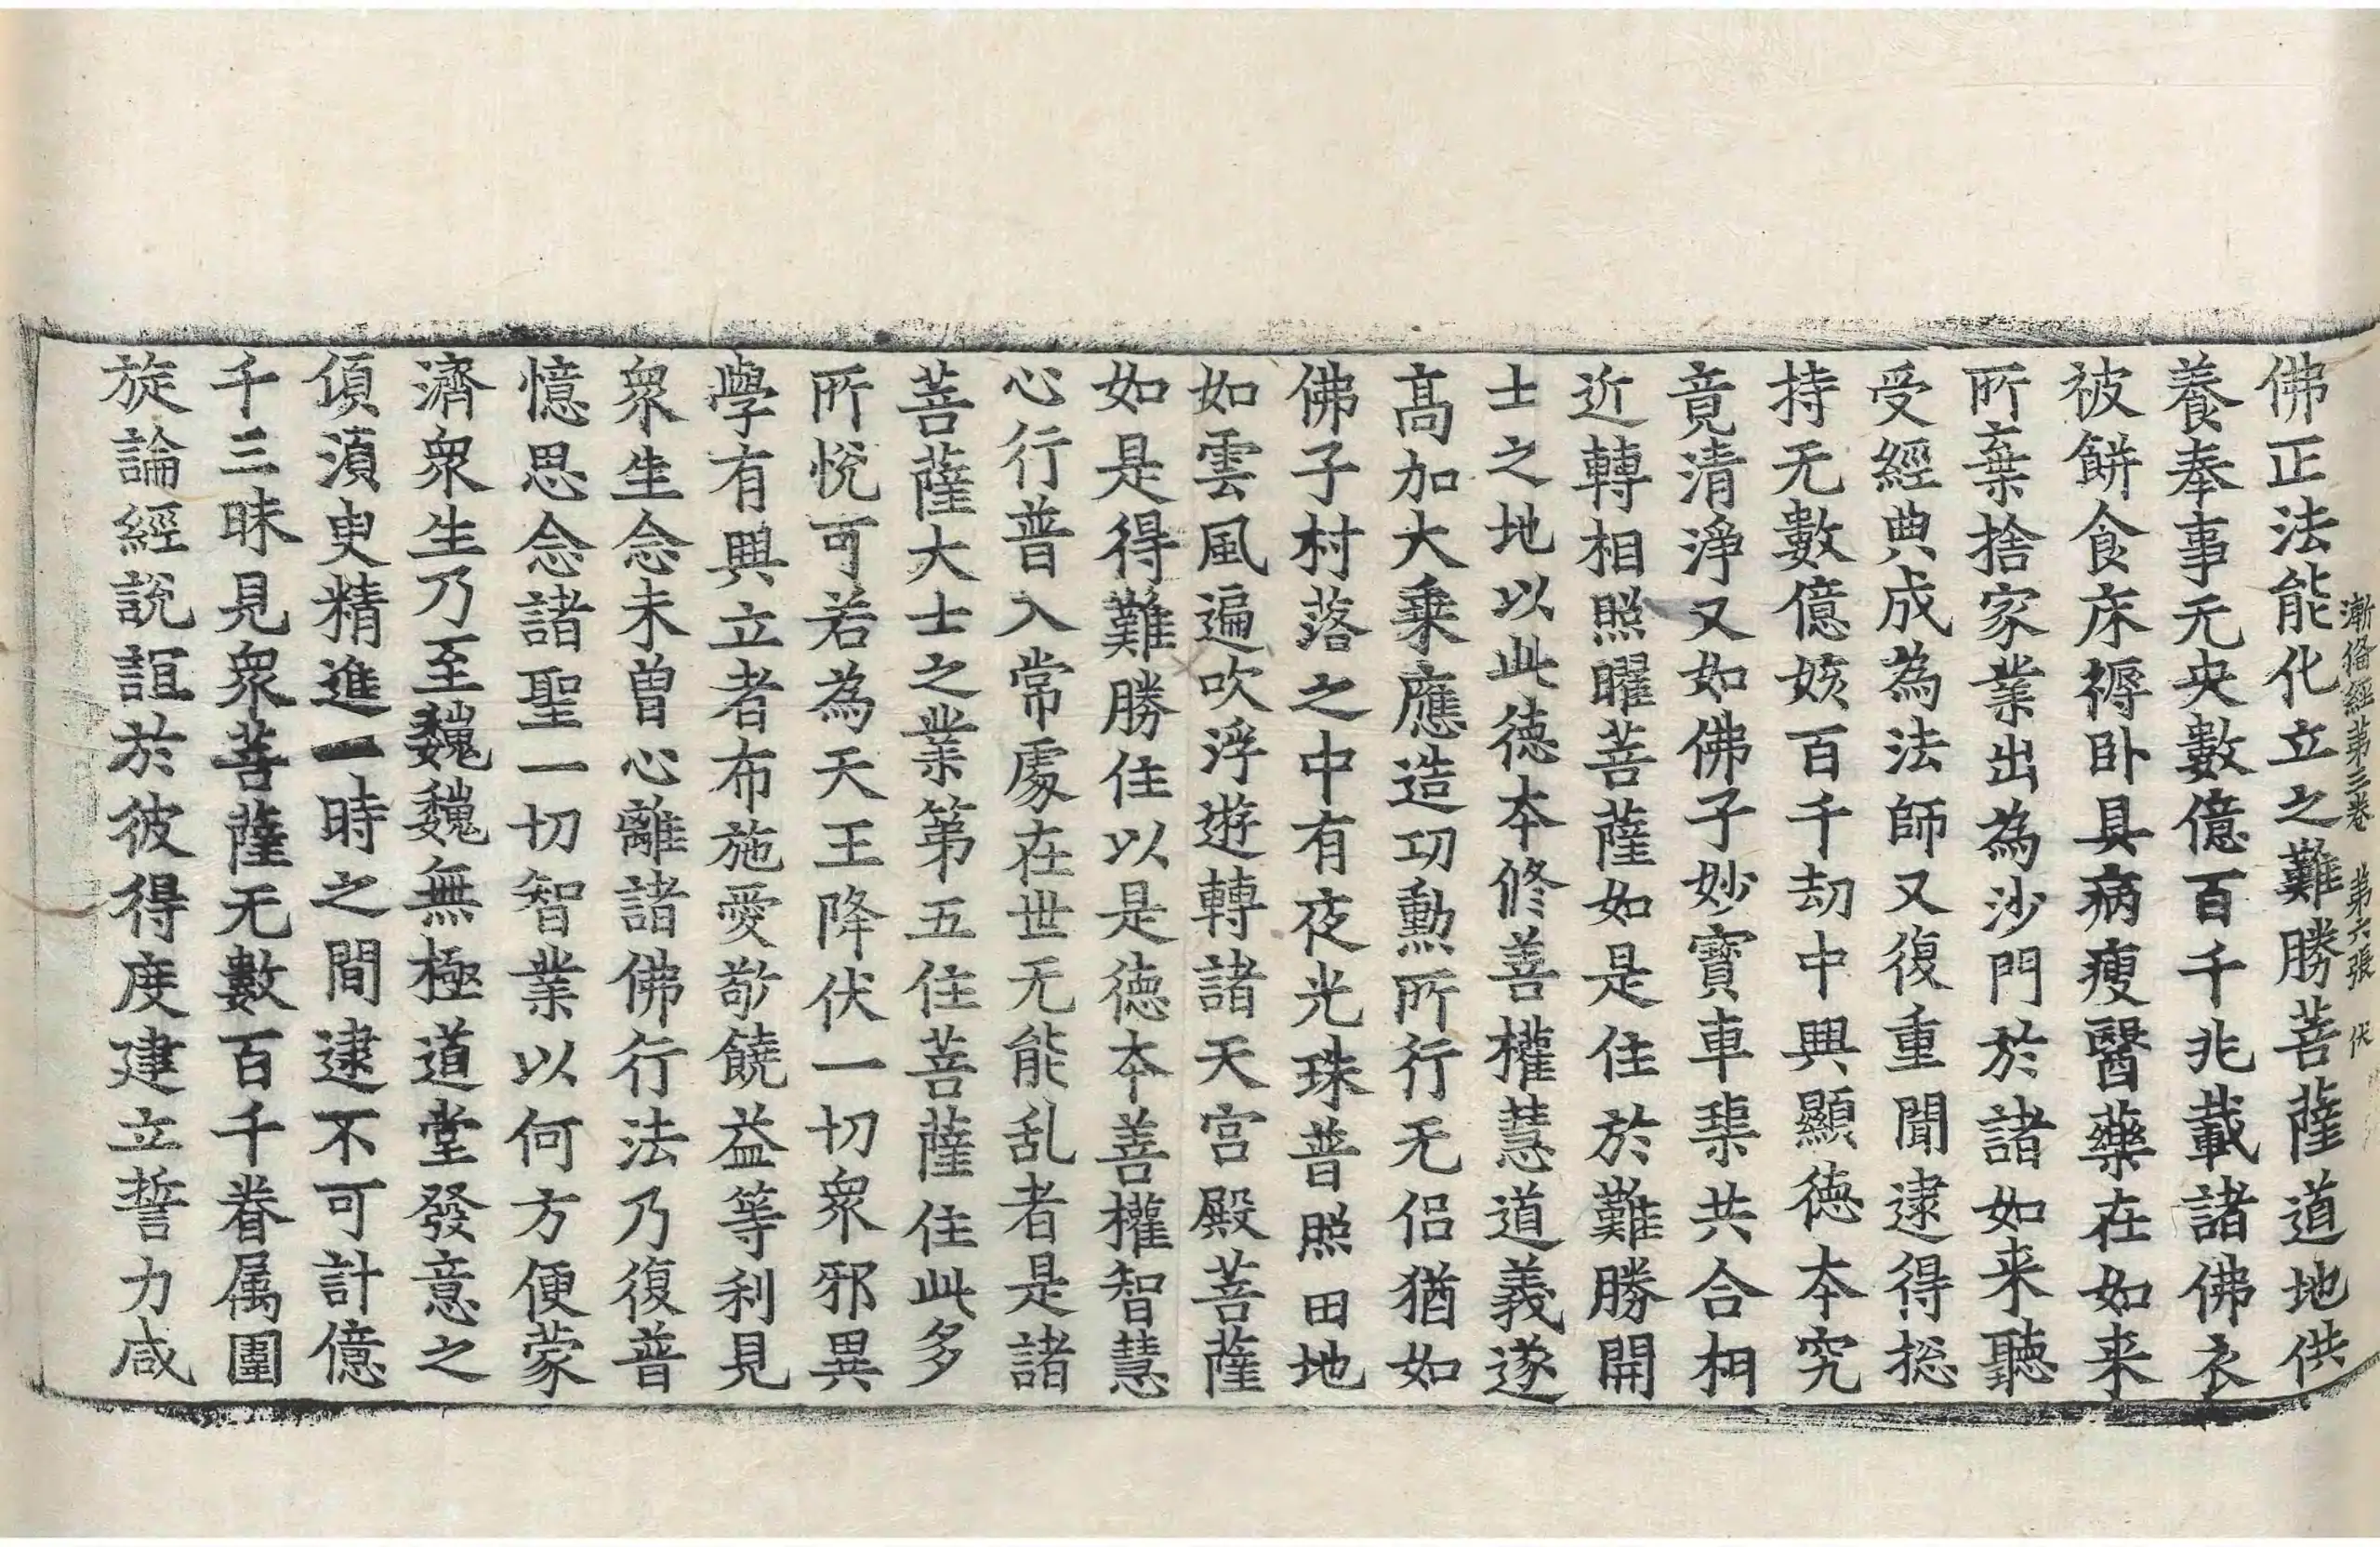 漸俻經第三卷　第六張　伏
佛正法能化立之難勝菩薩道地供
養奉事无央數億百千兆載諸佛衣
被餅食床褥卧具病瘦醫藥在如来
所棄捨家業出為沙門於諸如来聽
受經典成為法師又復重聞逮得捴
持无數億姟百千劫中興顯徳夲究
竟清淨又如佛子妙寶車𤦲共合相
近轉相照曜菩薩如是住於難勝開
士之地以此徳夲修善權慧道義遂
髙加大乗應造功勲所行无侣猶如
佛子村落之中有夜光珠普照田地
如雲風遍吹浮遊轉諸天宫殿菩薩
如是得難勝住以是徳夲善權智慧
心行普入常處在世无能乱者是諸
菩薩大士之業第五住菩薩住此多
所悅可若為天王降伏一切衆邪異
學有興立者布施愛敬饒益等利見
衆生念未曽心離諸佛行法乃復普
憶思念諸聖一切智業以何方便蒙
濟衆生乃至巍巍無極道堂發意之
傾湏臾精進一時之間逮不可計億
千三昧見衆菩薩无數百千眷属圍
旋論經説誼於彼得度建立誓力咸